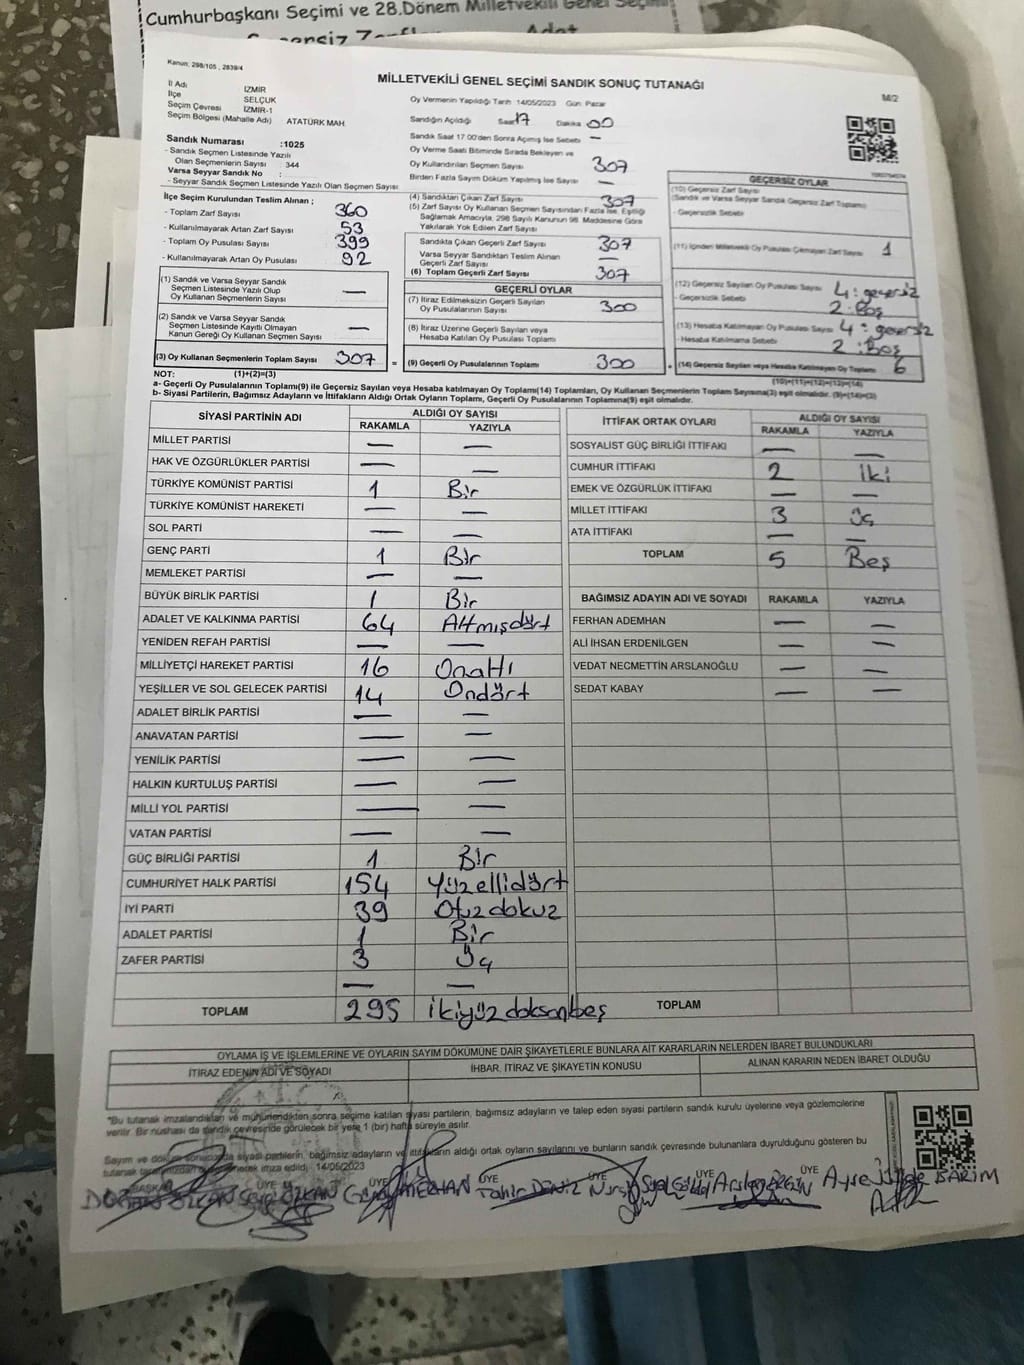 Cumhurbaşkanı Seçimi ve 28.Dönem Milletvekili Genel Seçimi
Adet
Kanun; 298/105 , 2839/4
MİLLETVEKİLİ GENEL SEÇİMİ SANDIK SONUÇ TUTANAĞI
M/2
İl Adı İZMİR
İlçe SELÇUK
Seçim Çevresi İZMİR-1
Seçim Bölgesi (Mahalle Adı) ATATÜRK MAH.
Oy Vermenin Yapıldığı Tarih 14/05/2023 Gün: Pazar
Sandığın Açıldığı Saat 17 Dakika 00
Sandık Saat 17.00'den Sonra Açımış İse Sebebi —
Oy Verme Saati Bitiminde Sırada Bekleyen ve
Oy Kullandırılan Seçmen Sayısı 307
Birden Fazla Sayım Döküm Yapılmış İse Sayısı —
Sandık Numarası :1025
- Sandık Seçmen Listesinde Yazılı
Olan Seçmenlerin Sayısı : 344
Varsa Seyyar Sandık No :
- Seyyar Sandık Seçmen Listesinde Yazılı Olan Seçmen Sayısı
İlçe Seçim Kurulundan Teslim Alınan ;
- Toplam Zarf Sayısı 360
- Kullanılmayarak Artan Zarf Sayısı 53
- Toplam Oy Pusulası Sayısı 399
- Kullanılmayarak Artan Oy Pusulası 92
(1) Sandık ve Varsa Seyyar Sandık
Seçmen Listesinde Yazılı Olup
Oy Kullanan Seçmenlerin Sayısı —
(2) Sandık ve Varsa Seyyar Sandık
Seçmen Listesinde Kayıtlı Olmayan
Kanun Gereği Oy Kullanan Seçmen Sayısı —
(3) Oy Kullanan Seçmenlerin Toplam Sayısı 307
(4) Sandıktan Çıkan Zarf Sayısı 307
(5) Zarf Sayısı Oy Kullanan Seçmen Sayısından Fazla İse, Eşitliği
Sağlamak Amacıyla, 298 Sayılı Kanunun 98. Maddesine Göre
Yakılarak Yok Edilen Zarf Sayısı
Sandıkta Çıkan Geçerli Zarf Sayısı 307
Varsa Seyyar Sandıktan Teslim Alınan
Geçerli Zarf Sayısı —
(6) Toplam Geçerli Zarf Sayısı 307
GEÇERLİ OYLAR
(7) İtiraz Edilmeksizin Geçerli Sayılan
Oy Pusulalarının Sayısı 300
(8) İtiraz Üzerine Geçerli Sayılan veya
Hesaba Katılan Oy Pusulası Toplamı
= (9) Geçerli Oy Pusulalarının Toplamı 300
GEÇERSİZ OYLAR
(10) Geçersiz Zarf Sayısı
(Sandık ve Varsa Seyyar Sandık Geçersiz Zarf Toplamı)
- Geçersizlik Sebebi
(11) İçinden Milletvekili Oy Pusulası Çıkmayan Zarf Sayısı 1
(12) Geçersiz Sayılan Oy Pusulası Sayısı 4: geçersiz
- Geçersizlik Sebebi 2: Boş
(13) Hesaba Katılmayan Oy Pusulası Sayısı 4: geçersiz
- Hesaba Katılmama Sebebi 2: Boş
(14) Geçersiz Sayılan veya Hesaba Katılmayan Oy Toplamı 6
NOT: (1)+(2)=(3) (10)+(11)+(12)+(13)=(14)
a- Geçerli Oy Pusulalarının Toplamı(9) ile Geçersiz Sayılan veya Hesaba katılmayan Oy Toplamı(14) Toplamları, Oy Kullanan Seçmenlerin Toplam Sayısına(3) eşit olmalıdır. (9)+(14)=(3)
b- Siyasi Partilerin, Bağımsız Adayların ve İttifakların Aldığı Ortak Oyların Toplamı, Geçerli Oy Pusulalarının Toplamına(9) eşit olmalıdır.
SİYASİ PARTİNİN ADI ALDIĞI OY SAYISI
RAKAMLA YAZIYLA
MİLLET PARTİSİ — —
HAK VE ÖZGÜRLÜKLER PARTİSİ — —
TÜRKİYE KOMÜNİST PARTİSİ 1 Bir
TÜRKİYE KOMÜNİST HAREKETİ — —
SOL PARTİ — —
GENÇ PARTİ 1 Bir
MEMLEKET PARTİSİ — —
BÜYÜK BİRLİK PARTİSİ 1 Bir
ADALET VE KALKINMA PARTİSİ 64 Altmışdört
YENİDEN REFAH PARTİSİ — —
MİLLİYETÇİ HAREKET PARTİSİ 16 Onaltı
YEŞİLLER VE SOL GELECEK PARTİSİ 14 Ondört
ADALET BİRLİK PARTİSİ — —
ANAVATAN PARTİSİ — —
YENİLİK PARTİSİ — —
HALKIN KURTULUŞ PARTİSİ — —
MİLLİ YOL PARTİSİ — —
VATAN PARTİSİ — —
GÜÇ BİRLİĞİ PARTİSİ 1 Bir
CUMHURİYET HALK PARTİSİ 154 Yüzellidört
İYİ PARTİ 39 Otuzdokuz
ADALET PARTİSİ 1 Bir
ZAFER PARTİSİ 3 Üç
— —
TOPLAM 295 ikiyüzdoksanbeş
İTTİFAK ORTAK OYLARI ALDIĞI OY SAYISI
RAKAMLA YAZIYLA
SOSYALİST GÜÇ BİRLİĞİ İTTİFAKI — —
CUMHUR İTTİFAKI 2 İki
EMEK VE ÖZGÜRLÜK İTTİFAKI — —
MİLLET İTTİFAKI 3 Üç
ATA İTTİFAKI — —
TOPLAM 5 Beş
BAĞIMSIZ ADAYIN ADI VE SOYADI RAKAMLA YAZIYLA
FERHAN ADEMHAN — —
ALİ İHSAN ERDENİLGEN — —
VEDAT NECMETTİN ARSLANOĞLU — —
SEDAT KABAY — —
TOPLAM
OYLAMA İŞ VE İŞLEMLERİNE VE OYLARIN SAYIM DÖKÜMÜNE DAİR ŞİKAYETLERLE BUNLARA AİT KARARLARIN NELERDEN İBARET BULUNDUKLARI
İTİRAZ EDENİN ADI VE SOYADI İHBAR, İTİRAZ VE ŞİKAYETİN KONUSU ALINAN KARARIN NEDEN İBARET OLDUĞU
"Bu tutanak imzalandıktan ve mühürlendikten sonra seçime katılan siyasi partilerin, bağımsız adayların ve talep eden siyasi partilerin sandık kurulu üyelerine veya gözlemcilerine
verilir. Bir nüshası da sandık çevresinde görülecek bir yere 1 (bir) hafta süreyle asılır.
Sayım ve döküm sonucunda siyasi partilerin, bağımsız adayların ve ittifakların aldığı ortak oyların sayılarını ve bunların sandık çevresinde bulunanlara duyrulduğunu gösteren bu
tutanak imza edildi. 14/05/2023
BAŞKAN ÜYE ÜYE ÜYE ÜYE ÜYE ÜYE
ÖZKAN MERHAN Tahir DENİZ Arslan ERGİN Ayşe BARIM